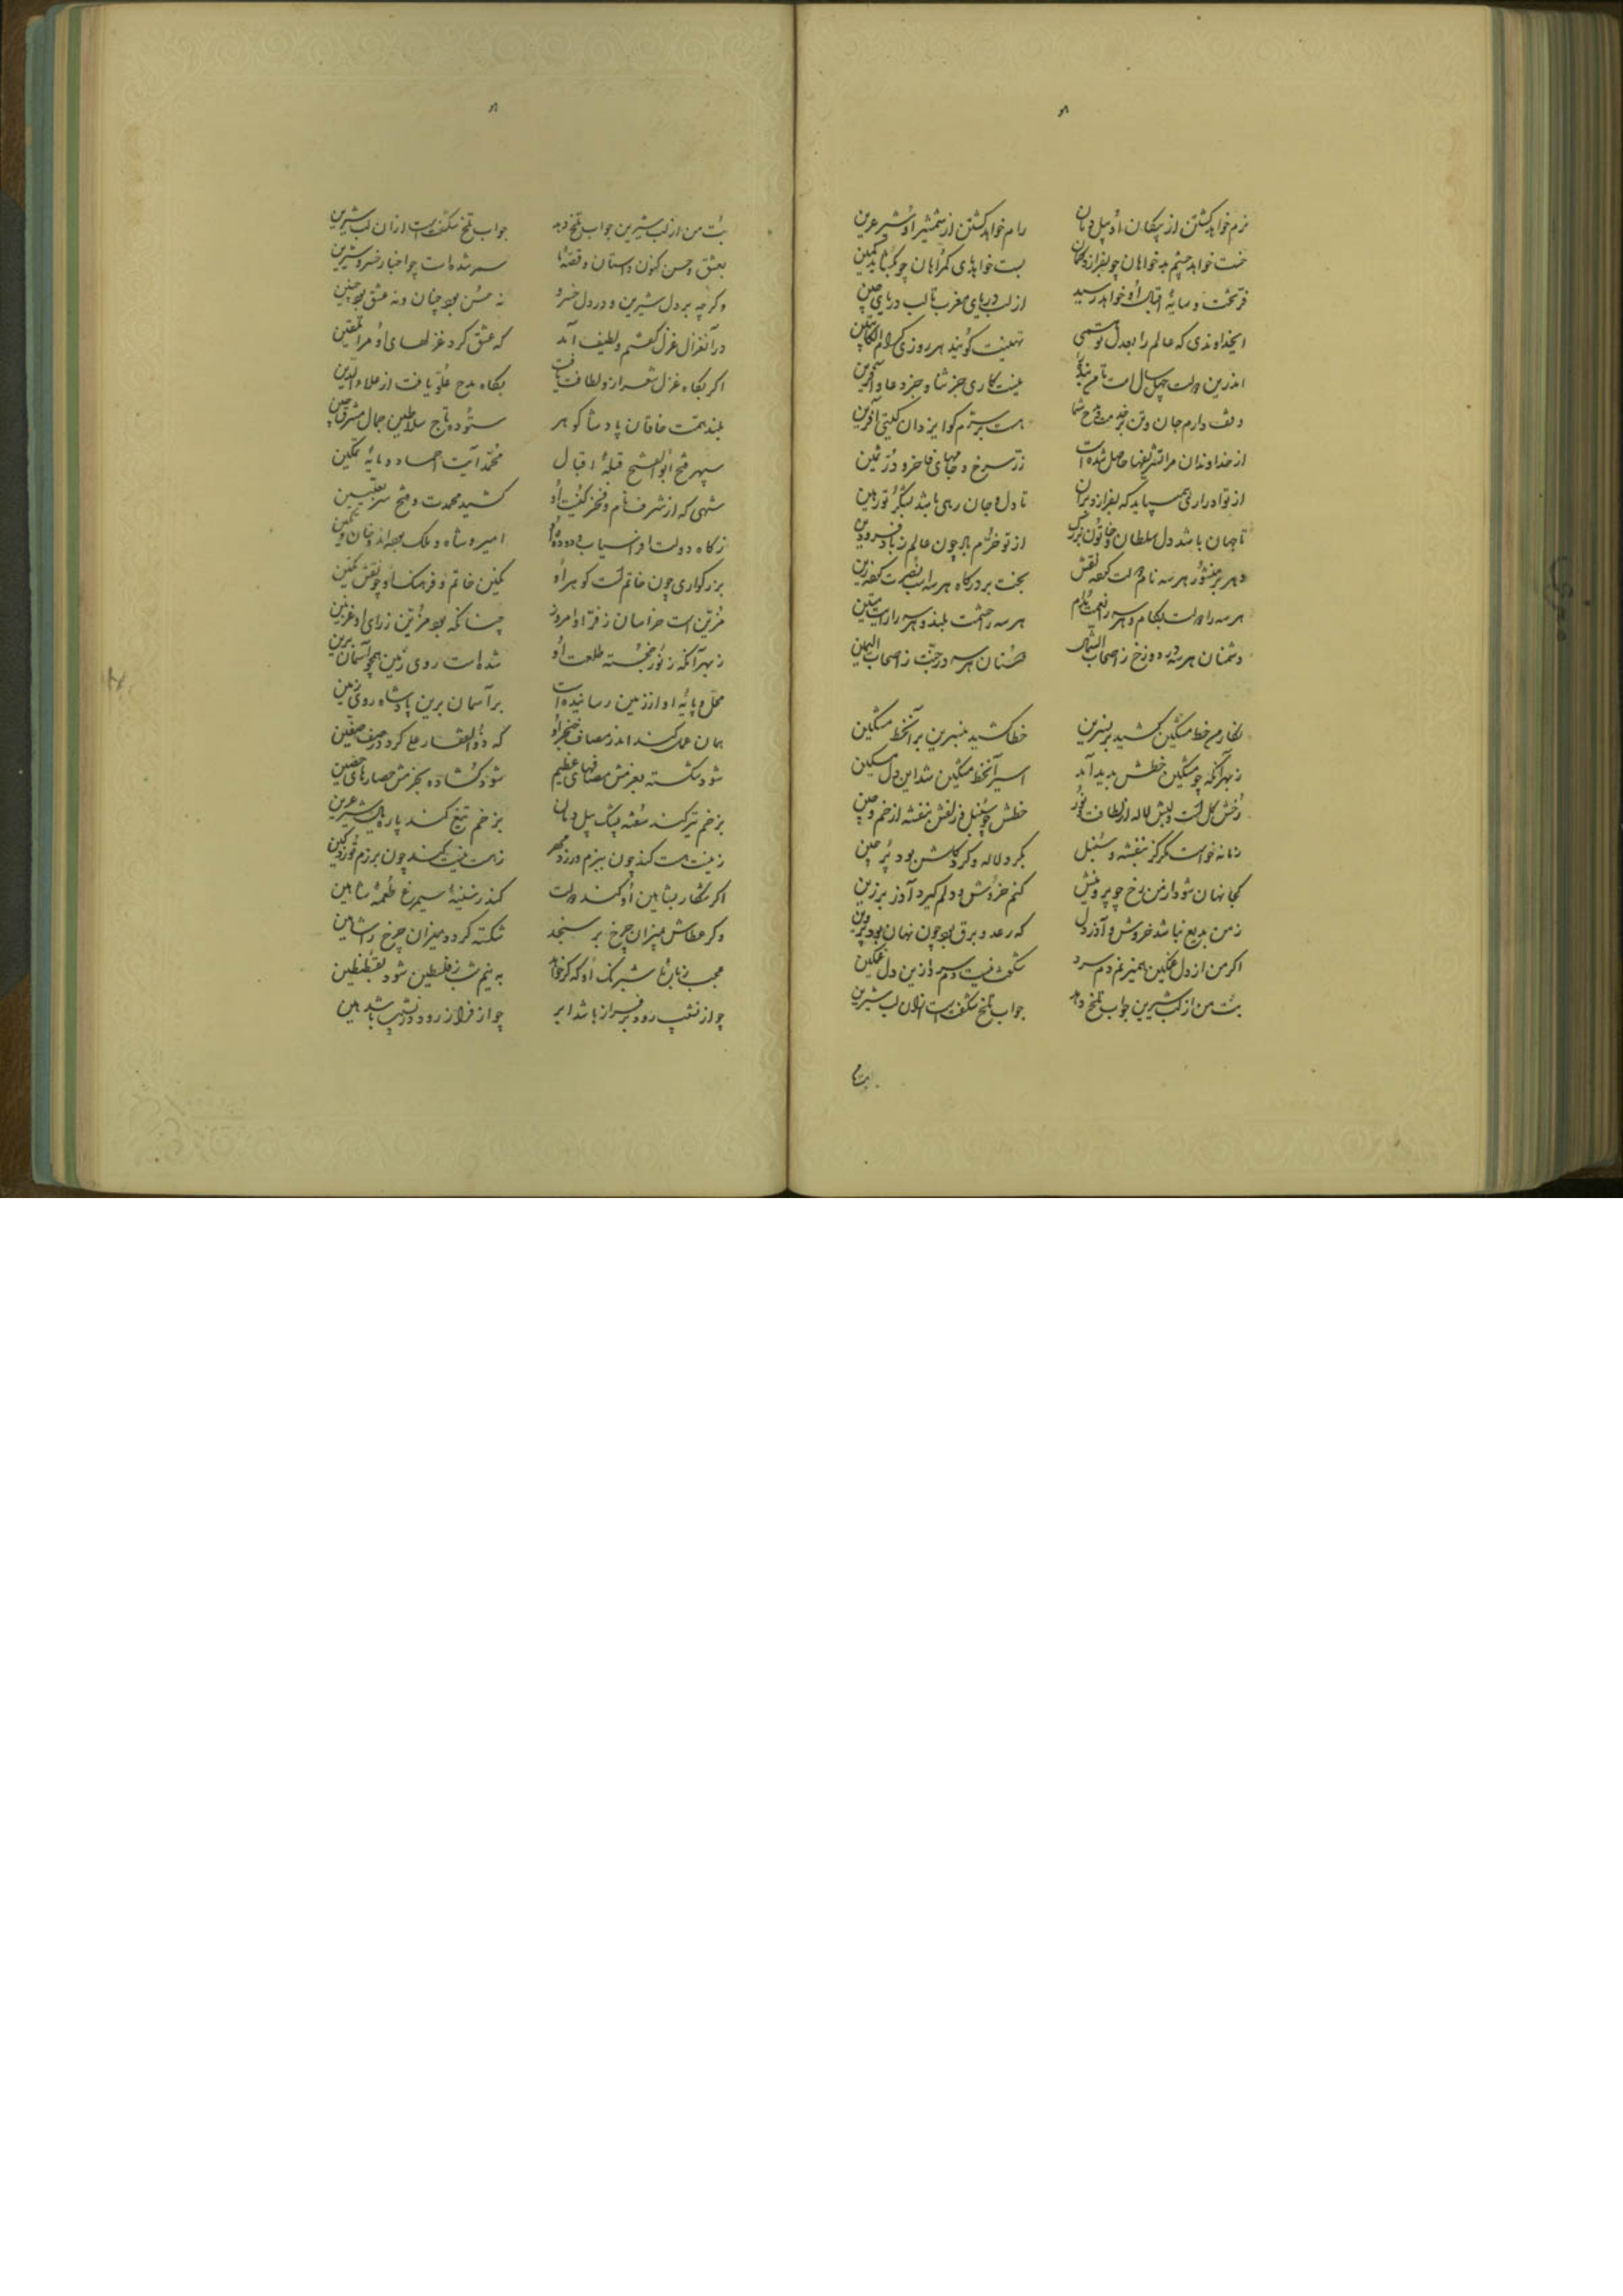 نرم خواهد گشتن از پیکان او پیل دمان رام خواهد گشتن از شمشیر او شیر عرین
خست خواهد چشم بدخواهان چو بفرازد کمان بست خواهد پای گمراهان چو بگشاید کمین
فر تخت و سایه اقبال او خواهد رسید از لب دریای مغرب تا لب دریای چین
ایخداوندی که عالم را بعدل تو همی تهنیت گویند هر روزی کرام الکاتبین
اندرین دولت چهل سال است تا من بنده را نیست کاری جز ثنا و جز دعا و آفرین
وقف دارم جان و تن بر خدمت و مدح شما هست بر سترم گوا یزدان گیتی آفرین
از خداوندان مرا تشریفها حاصل شده است زر سرخ و جامهای فاخر و در ثمین
از تو ادراری همی باید که بفزاید بر آن تا دل و جان رهی باشد بشکر تو رهین
تا جهان باشد دل سلطان و خاتون بزرگ از تو خرم باد چون عالم ز باد فرودین
دهر بر منشور هر سه نام دولت کرده نقش بخت بر درگاه هر سه اسب نصرت کرده زین
هر سه را دولت بکام و هر سه را نعمت مدام هر سه را حشمت بلند و هر سه را رای متین
دشمنان هر سه در دوزخ ز اصحاب الشمال دوستان هر سه در جنت ز اصحاب الیمین
نگار من خط مشکین کشید بر نسرین خطا کشید نسرین بر آنخط مشکین
ز بهر آنکه چو مشکین خطش پدید آمد اسیر آنخط مشکین شد این دل مسکین
رخش گل است و لبش لاله از لطافت و نور خطش چو سنبل و زلفش بنفشه از خم و چین
زمانه خواست مگر کز بنفشه و سنبل بگرد لاله و گرد گلش بود پرچین
کجا نهان شود از من رخ چو پروینش کنم خروش و دلم گیرد آذر برزین
ز من بدیع نباشد خروش و آذر دل که رعد و برق بود چون نهان بود پروین
اگر من از دل غمگین همیزنم دم سرد شگفت نیست دم سرد ازین دل غمگین
بت من از لب شیرین جواب تلخ دهد جواب تلخ شگفت است از آن لب شیرین
بت من از لب شیرین جواب تلخ دهد جواب تلخ شگفت است از آن لب شیرین
بعشق و حسن کنون داستان و قصه ما سمر شده است چو اخبار خسرو و شیرین
وگرچه بر دل شیرین و در دل خسرو نه حسن بود چنان و نه عشق بود چنین
در آنغزال غزل گفتم و لطیف آمد که عشق کرد غزلهای او مرا تلقین
اگر بگاه غزل شعر از و لطافت یافت بگاه مدح علو یافت از علاء الدین
بلند همت خاقان پادشا گوهر ستوده تاج سلاطین جمال مشرق و چین
سپهر فتح ابوالفتح قبله اقبال محمد آیت احماد و مایه تمکین
شهی که از شرف نام و فخر کنیت او کشید محمدت و فتح سر بعلیین
ز گاه دولت افراسیاب دوده او امیر و شاه و ملک بوده اند و خان و تکین
بزرگواری چون خاتم است گوهر او نگین خاتم و فرهنگ او چو نقش نگین
مزین است خراسان ز فر او امروز چنانکه بود مزین ز رای او غزنین
ز بهر آنکه ز نور خجسته طلعت او شده است روی زمین همچو آسمان برین
محل و پایه او از زمین رسانیده است بر آسمان برین پادشاه روی زمین
همان عمل کند اندر مصاف خنجر او که ذوالفقار علی کرد در صف صفین
شود شکسته بعزمش مصافهای عظیم شود گشاده بحزمش حصارهای حصین
بزخم تیر کند سفته پشت پیل دمان بزخم تیغ کند پاره یال شیر عرین
ز نیست هست کند چون ببزم ورزد مهر ز هست نیست کند چون برزم توزد کین
اگر شکار بشاهین او کند دولت کند ز سینه سیمرغ طعمه شاهین
وگر عطاش بمیزان چرخ بر سنجد شکسته گردد میزان چرخ را شاهین
به نیم شب ز فلسطین شود بقسطنطین
چو از نشیب رود بر فراز باشد ابر چو از فراز رود در نشیب باشد هین